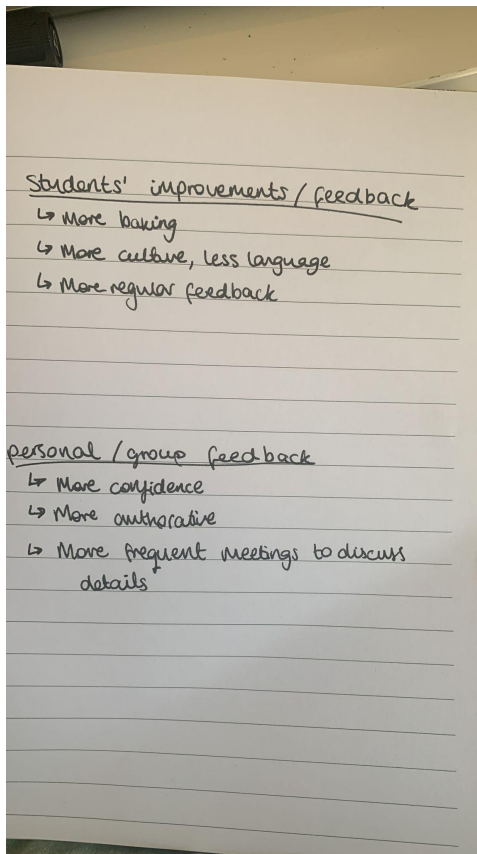 Students' improvements/feedback
↳ More baking
↳ More culture, less language
↳ More regular feedback
personal/group feedback
↳ More confidence
↳ More authorative
↳ More frequent meetings to discuss
details